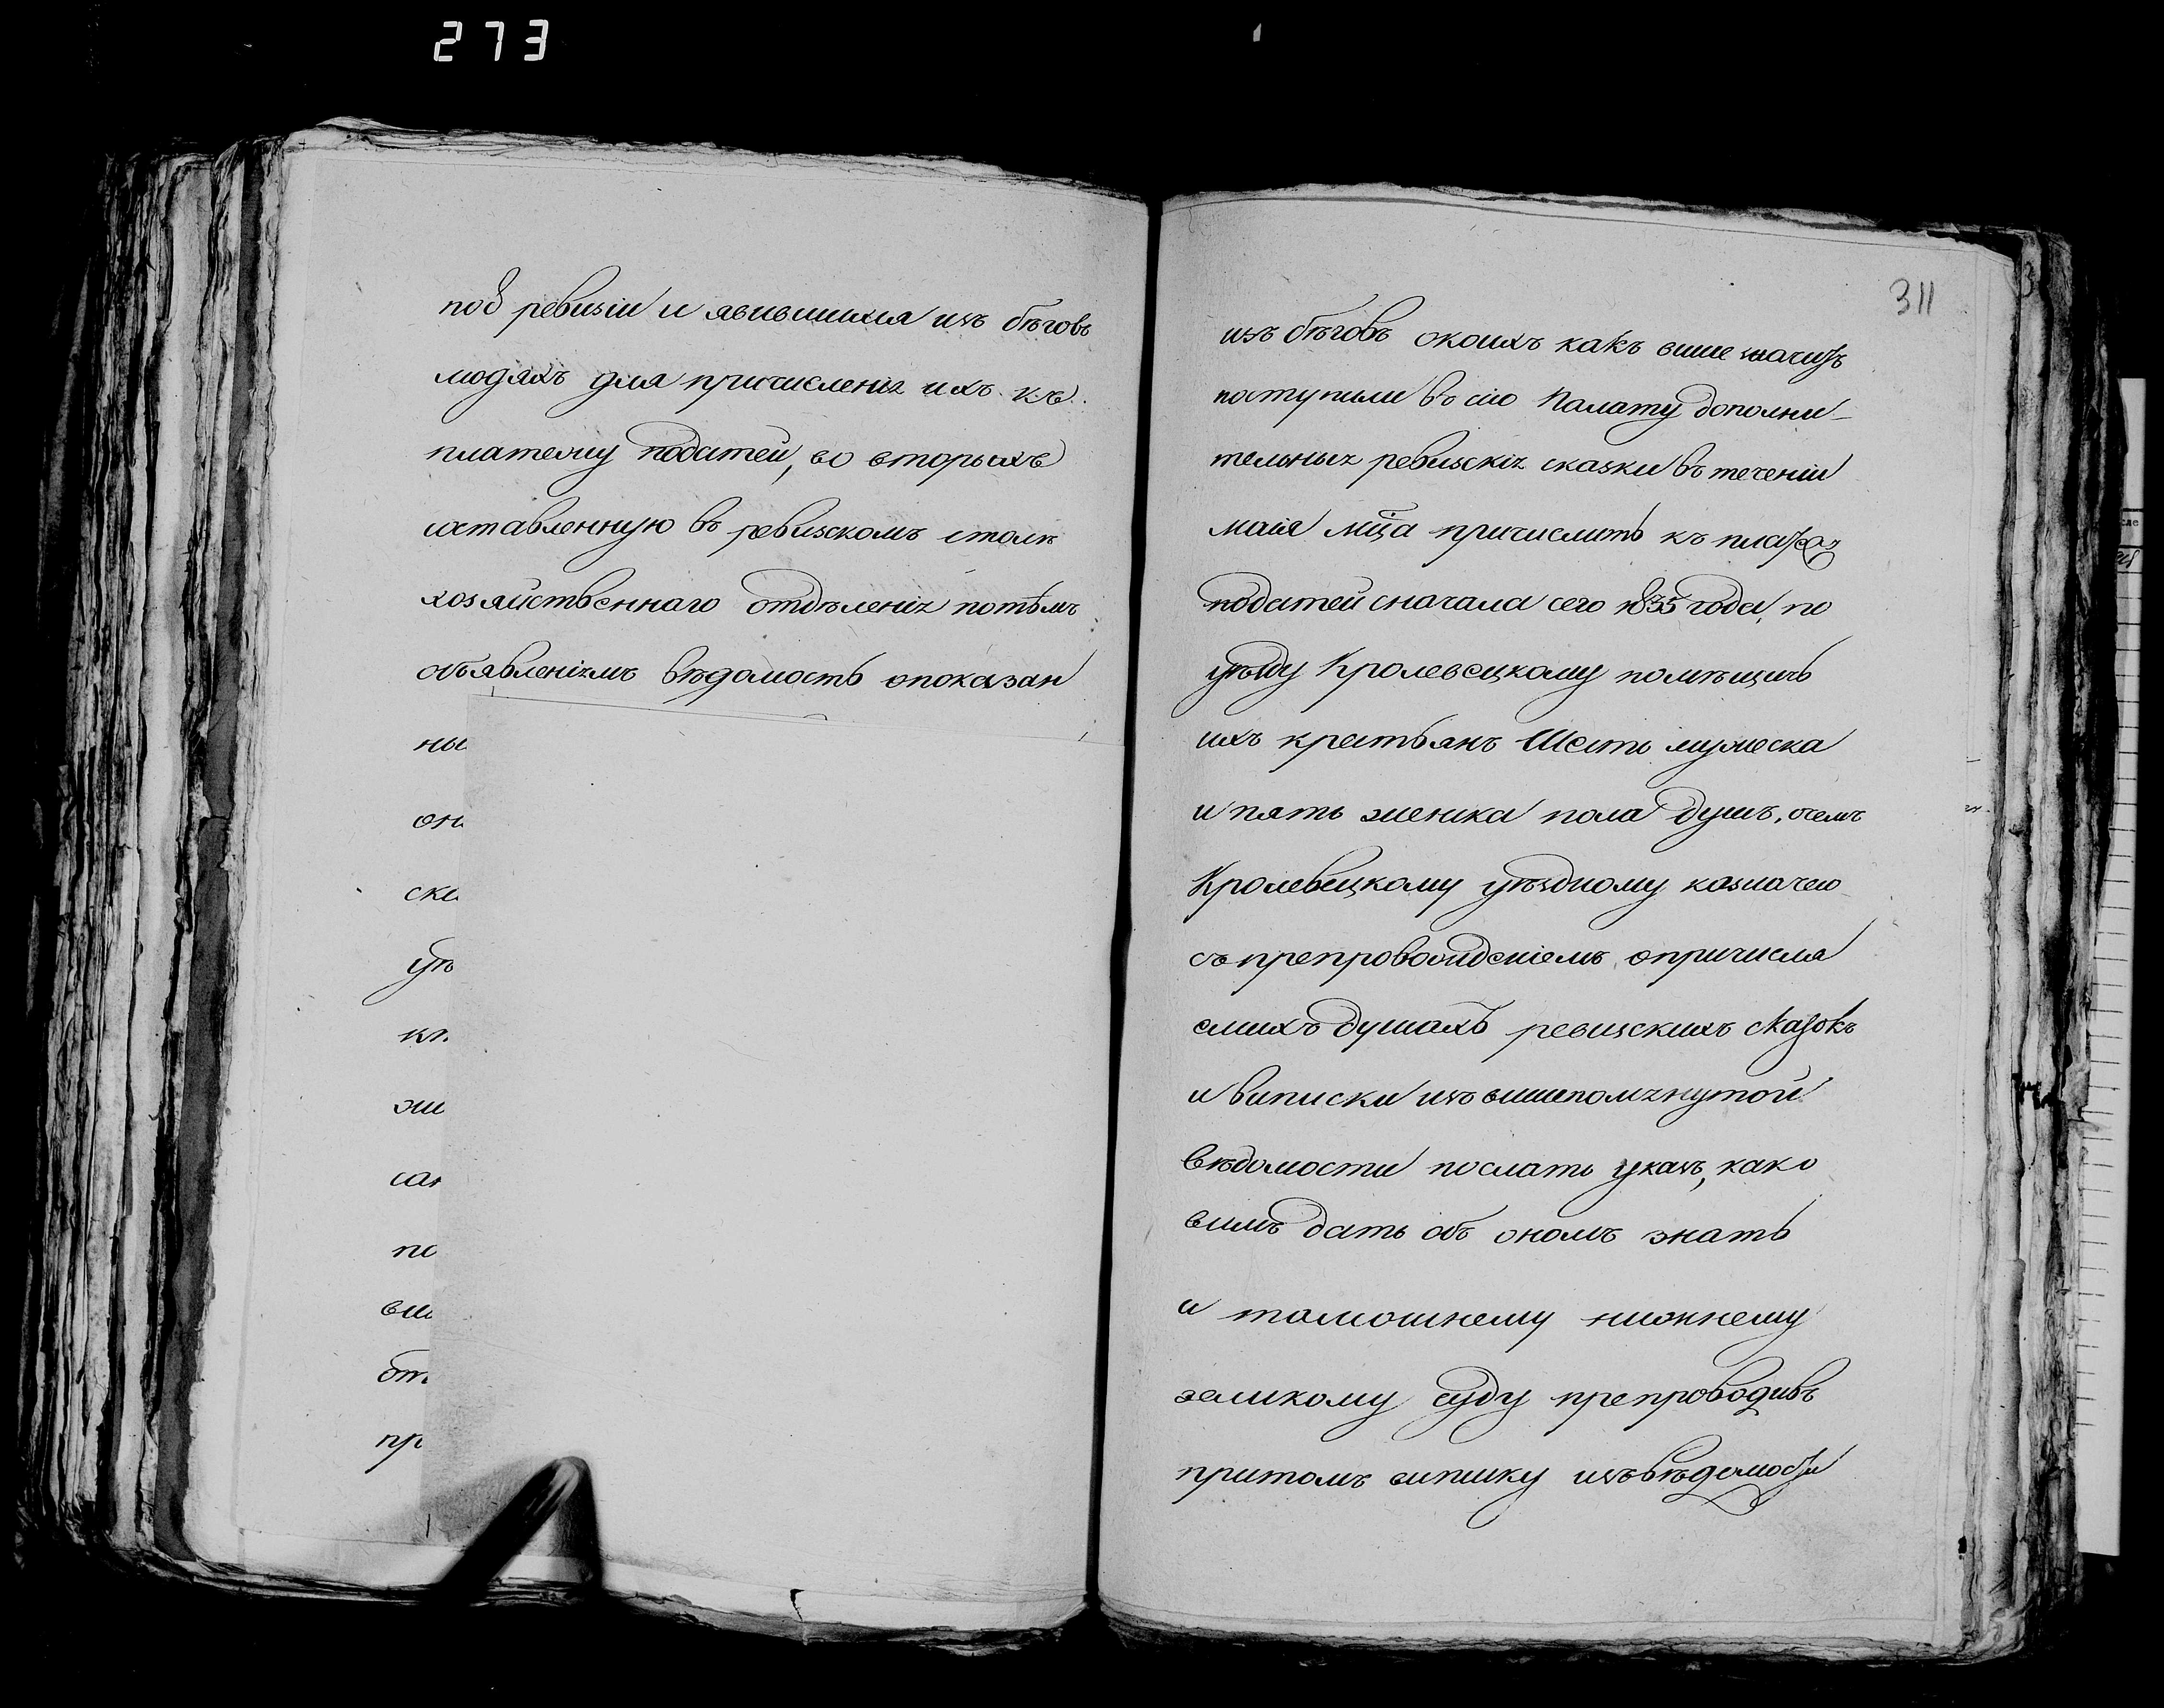 273
под ревизіи и явившихся изъ бѣговъ
людяхъ для причисленія ихъ къ
платежу податей, во вторыхъ
составленную въ ревизскомъ столѣ
хозяйственнаго отдѣленія потѣмъ
объявленіямъ вѣдомость опоказан
ны
он
ска
уѣ
кл
жи
сан
по
выш
от
пр
311
изъ бѣговъ окоихъ какъ выше значитъ
поступили въ сію Палату дополни-
тельныя ревизскія сказки въ теченіи
маія мца причислить къ платежу
податей сначала сего 1835 года, по
уѣзду Кролевецкому помѣщичь
ихъ крестьянъ Шесть мужеска
и пять женска пола душъ, очемъ
Кролевецкому уѣздному казначею
съ препровожденіемъ опричисля
емыхъ душахъ ревизскихъ сказокъ
и выписки изъ вышепомянутой
вѣдомости послать указъ, како
вымъ дать объ ономъ знать
и тамошнему нижнему
земскому суду препроводивъ
притомъ выписку изъ вѣдомости